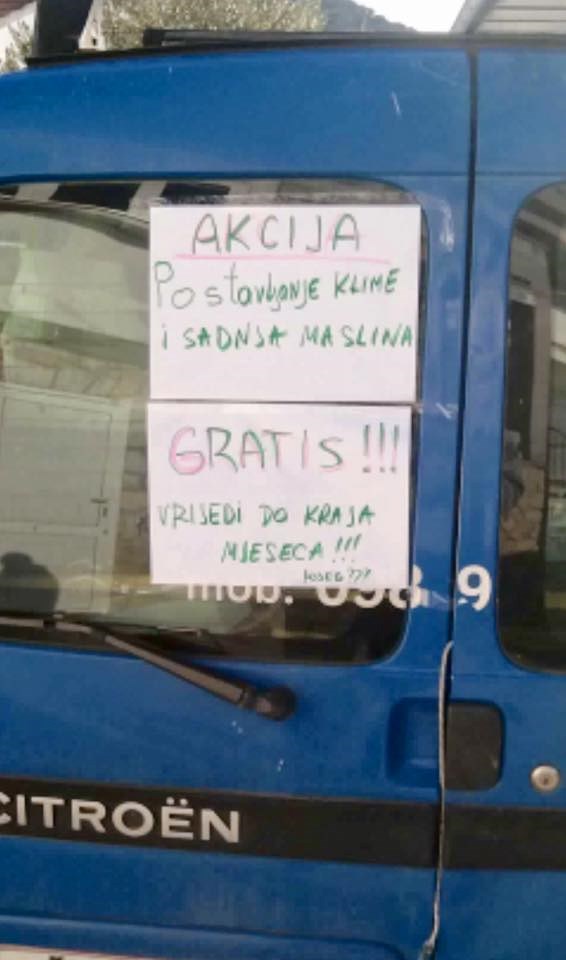 AKCIJA
Postavljanje KLIME
i SADNJA MASLINA
GRATIS !!!
VRIJEDI DO KRAJA
MJESECA !!!
mob. 098 9
CITROËN